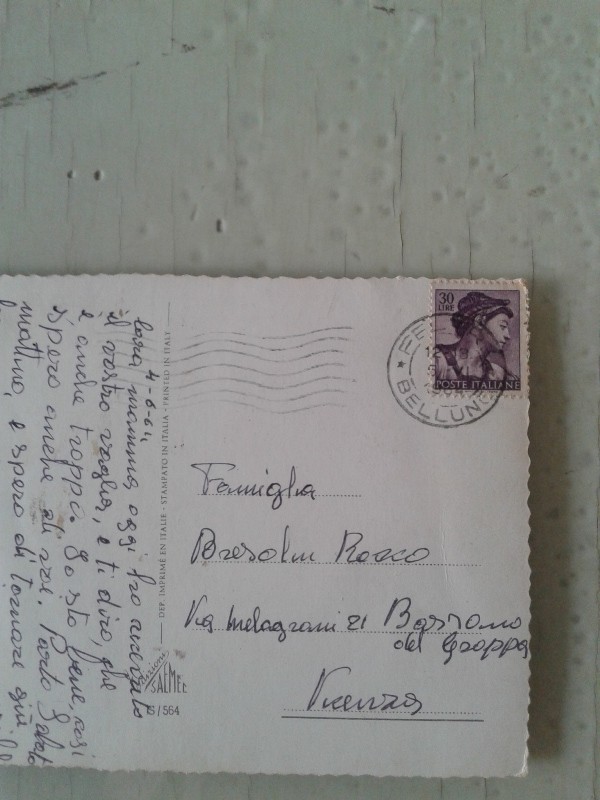 4-6-61
Cara mamma, oggi ho ricevuto
il vostro vaglia, e ti dirò, che
è anche troppo. Io sto bene, così
spero anche di voi. Parto Sabato
mattina, e spero di tornare giù
DEP. IMPRIMÉ EN ITALIE - STAMPATO IN ITALIA - PRINTED IN ITALY
SAEMEC
S/564
30
LIRE
POSTE ITALIANE
BELLUNO
Famiglia
Bresolin Rocco
Via Melagrani 21 Bassano
del Grappa
Vicenza